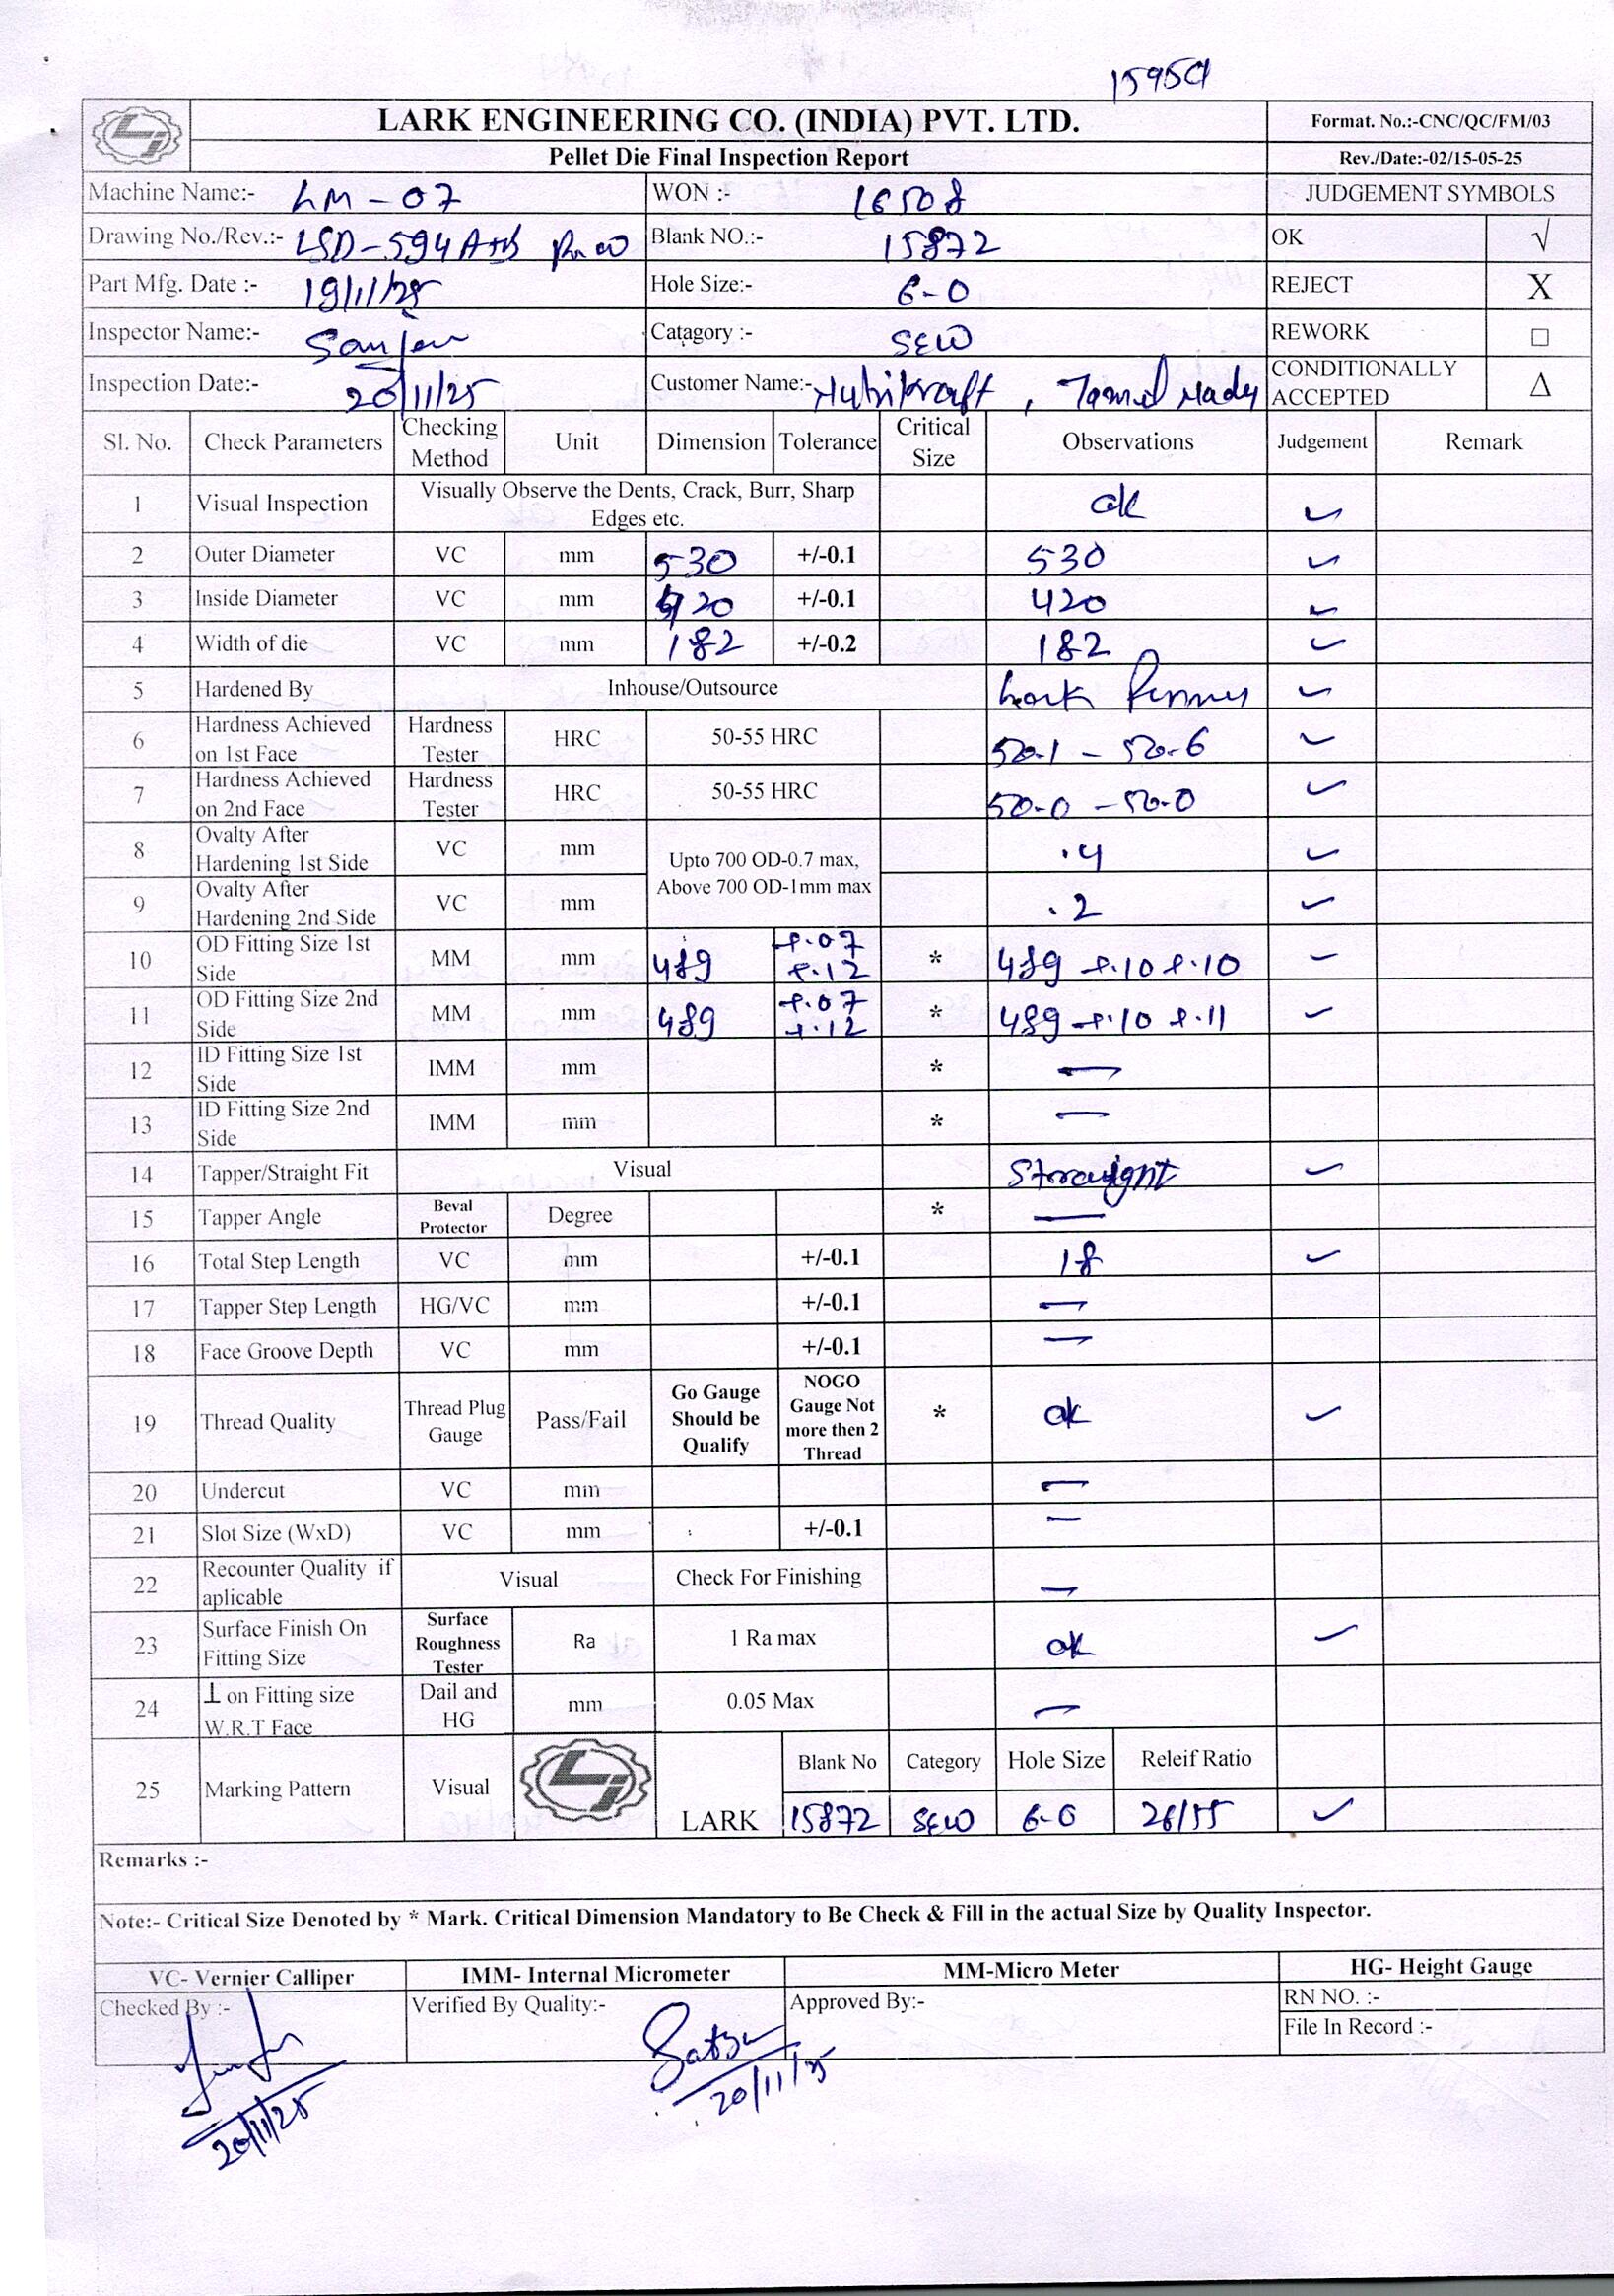 15959
LARK ENGINEERING CO. (INDIA) PVT. LTD.
Format. No.:-CNC/QC/FM/03
Pellet Die Final Inspection Report
Rev./Date:-02/15-05-25
Machine Name:- LM-07 WON :- 16508 JUDGEMENT SYMBOLS
Drawing No./Rev.:- LSD-594 Blank NO.:- 15872 OK √
Part Mfg. Date :- 19/11/25 Hole Size:- 6-0 REJECT X
Inspector Name:- Catagory :- SEW REWORK □
Inspection Date:- 20/11/25 Customer Name:- Nutrikraft, Tamil Nadu CONDITIONALLY ACCEPTED Δ
Sl. No. Check Parameters Checking Method Unit Dimension Tolerance Critical Size Observations Judgement Remark
1 Visual Inspection Visually Observe the Dents, Crack, Burr, Sharp Edges etc. ok ✓
2 Outer Diameter VC mm 530 +/-0.1 530 ✓
3 Inside Diameter VC mm 420 +/-0.1 420 ✓
4 Width of die VC mm 182 +/-0.2 182 ✓
5 Hardened By Inhouse/Outsource Lark ✓
6 Hardness Achieved on 1st Face Hardness Tester HRC 50-55 HRC 50.1 - 50.6 ✓
7 Hardness Achieved on 2nd Face Hardness Tester HRC 50-55 HRC 50.0 - 50.0 ✓
8 Ovalty After Hardening 1st Side VC mm Upto 700 OD-0.7 max, Above 700 OD-1mm max .4 ✓
9 Ovalty After Hardening 2nd Side VC mm .2 ✓
10 OD Fitting Size 1st Side MM mm 489 +.07 +.12 * 489 +.10 +.10 ✓
11 OD Fitting Size 2nd Side MM mm 489 +.07 +.12 * 489 +.10 +.11 ✓
12 ID Fitting Size 1st Side IMM mm * —
13 ID Fitting Size 2nd Side IMM mm * —
14 Tapper/Straight Fit Visual Straight ✓
15 Tapper Angle Beval Protector Degree * —
16 Total Step Length VC mm +/-0.1 18 ✓
17 Tapper Step Length HG/VC mm +/-0.1 —
18 Face Groove Depth VC mm +/-0.1 —
19 Thread Quality Thread Plug Gauge Pass/Fail Go Gauge Should be Qualify NOGO Gauge Not more then 2 Thread * ok ✓
20 Undercut VC mm —
21 Slot Size (WxD) VC mm +/-0.1 —
22 Recounter Quality if aplicable Visual Check For Finishing —
23 Surface Finish On Fitting Size Surface Roughness Tester Ra 1 Ra max ok ✓
24 ⊥ on Fitting size W.R.T Face Dail and HG mm 0.05 Max —
25 Marking Pattern Visual LARK Blank No Category Hole Size Releif Ratio
15872 SEW 6-0 26/55 ✓
Remarks :-
Note:- Critical Size Denoted by * Mark. Critical Dimension Mandatory to Be Check & Fill in the actual Size by Quality Inspector.
VC- Vernier Calliper IMM- Internal Micrometer MM-Micro Meter HG- Height Gauge
Checked By :- Verified By Quality:- Approved By:- RN NO. :-
File In Record :-
20/11/25 20/11/25